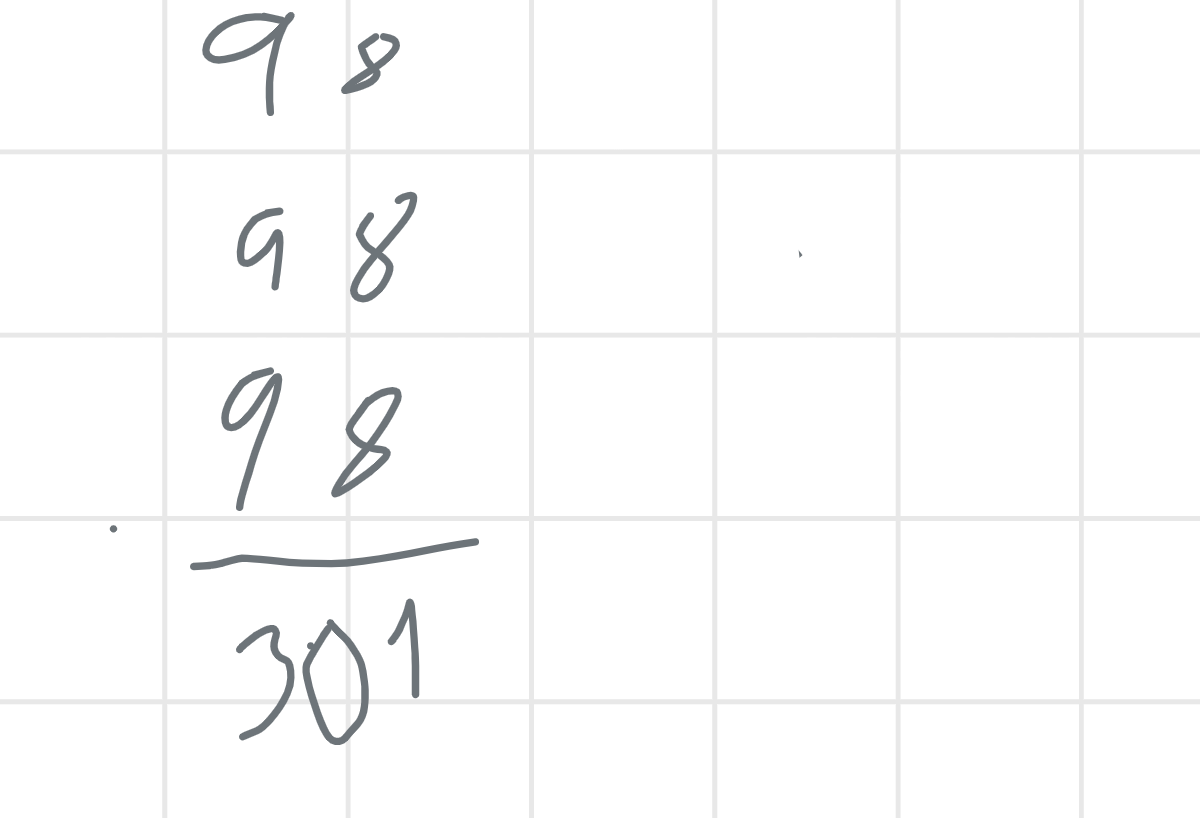 98
98
98
301